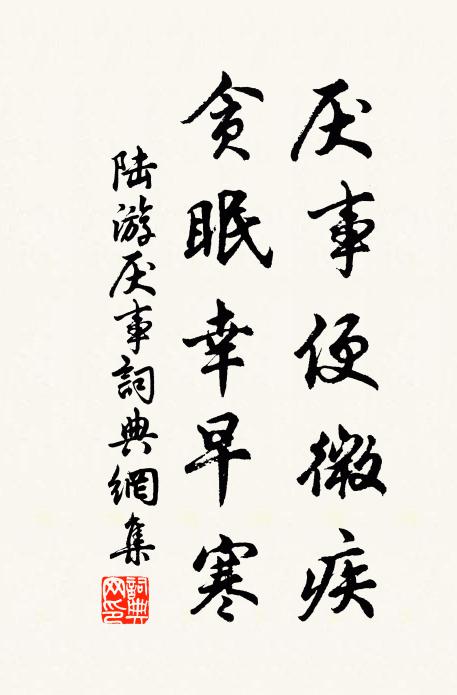 厌事便微疾
贪眠幸早寒
陆游厌事詞典網集
詞典网印